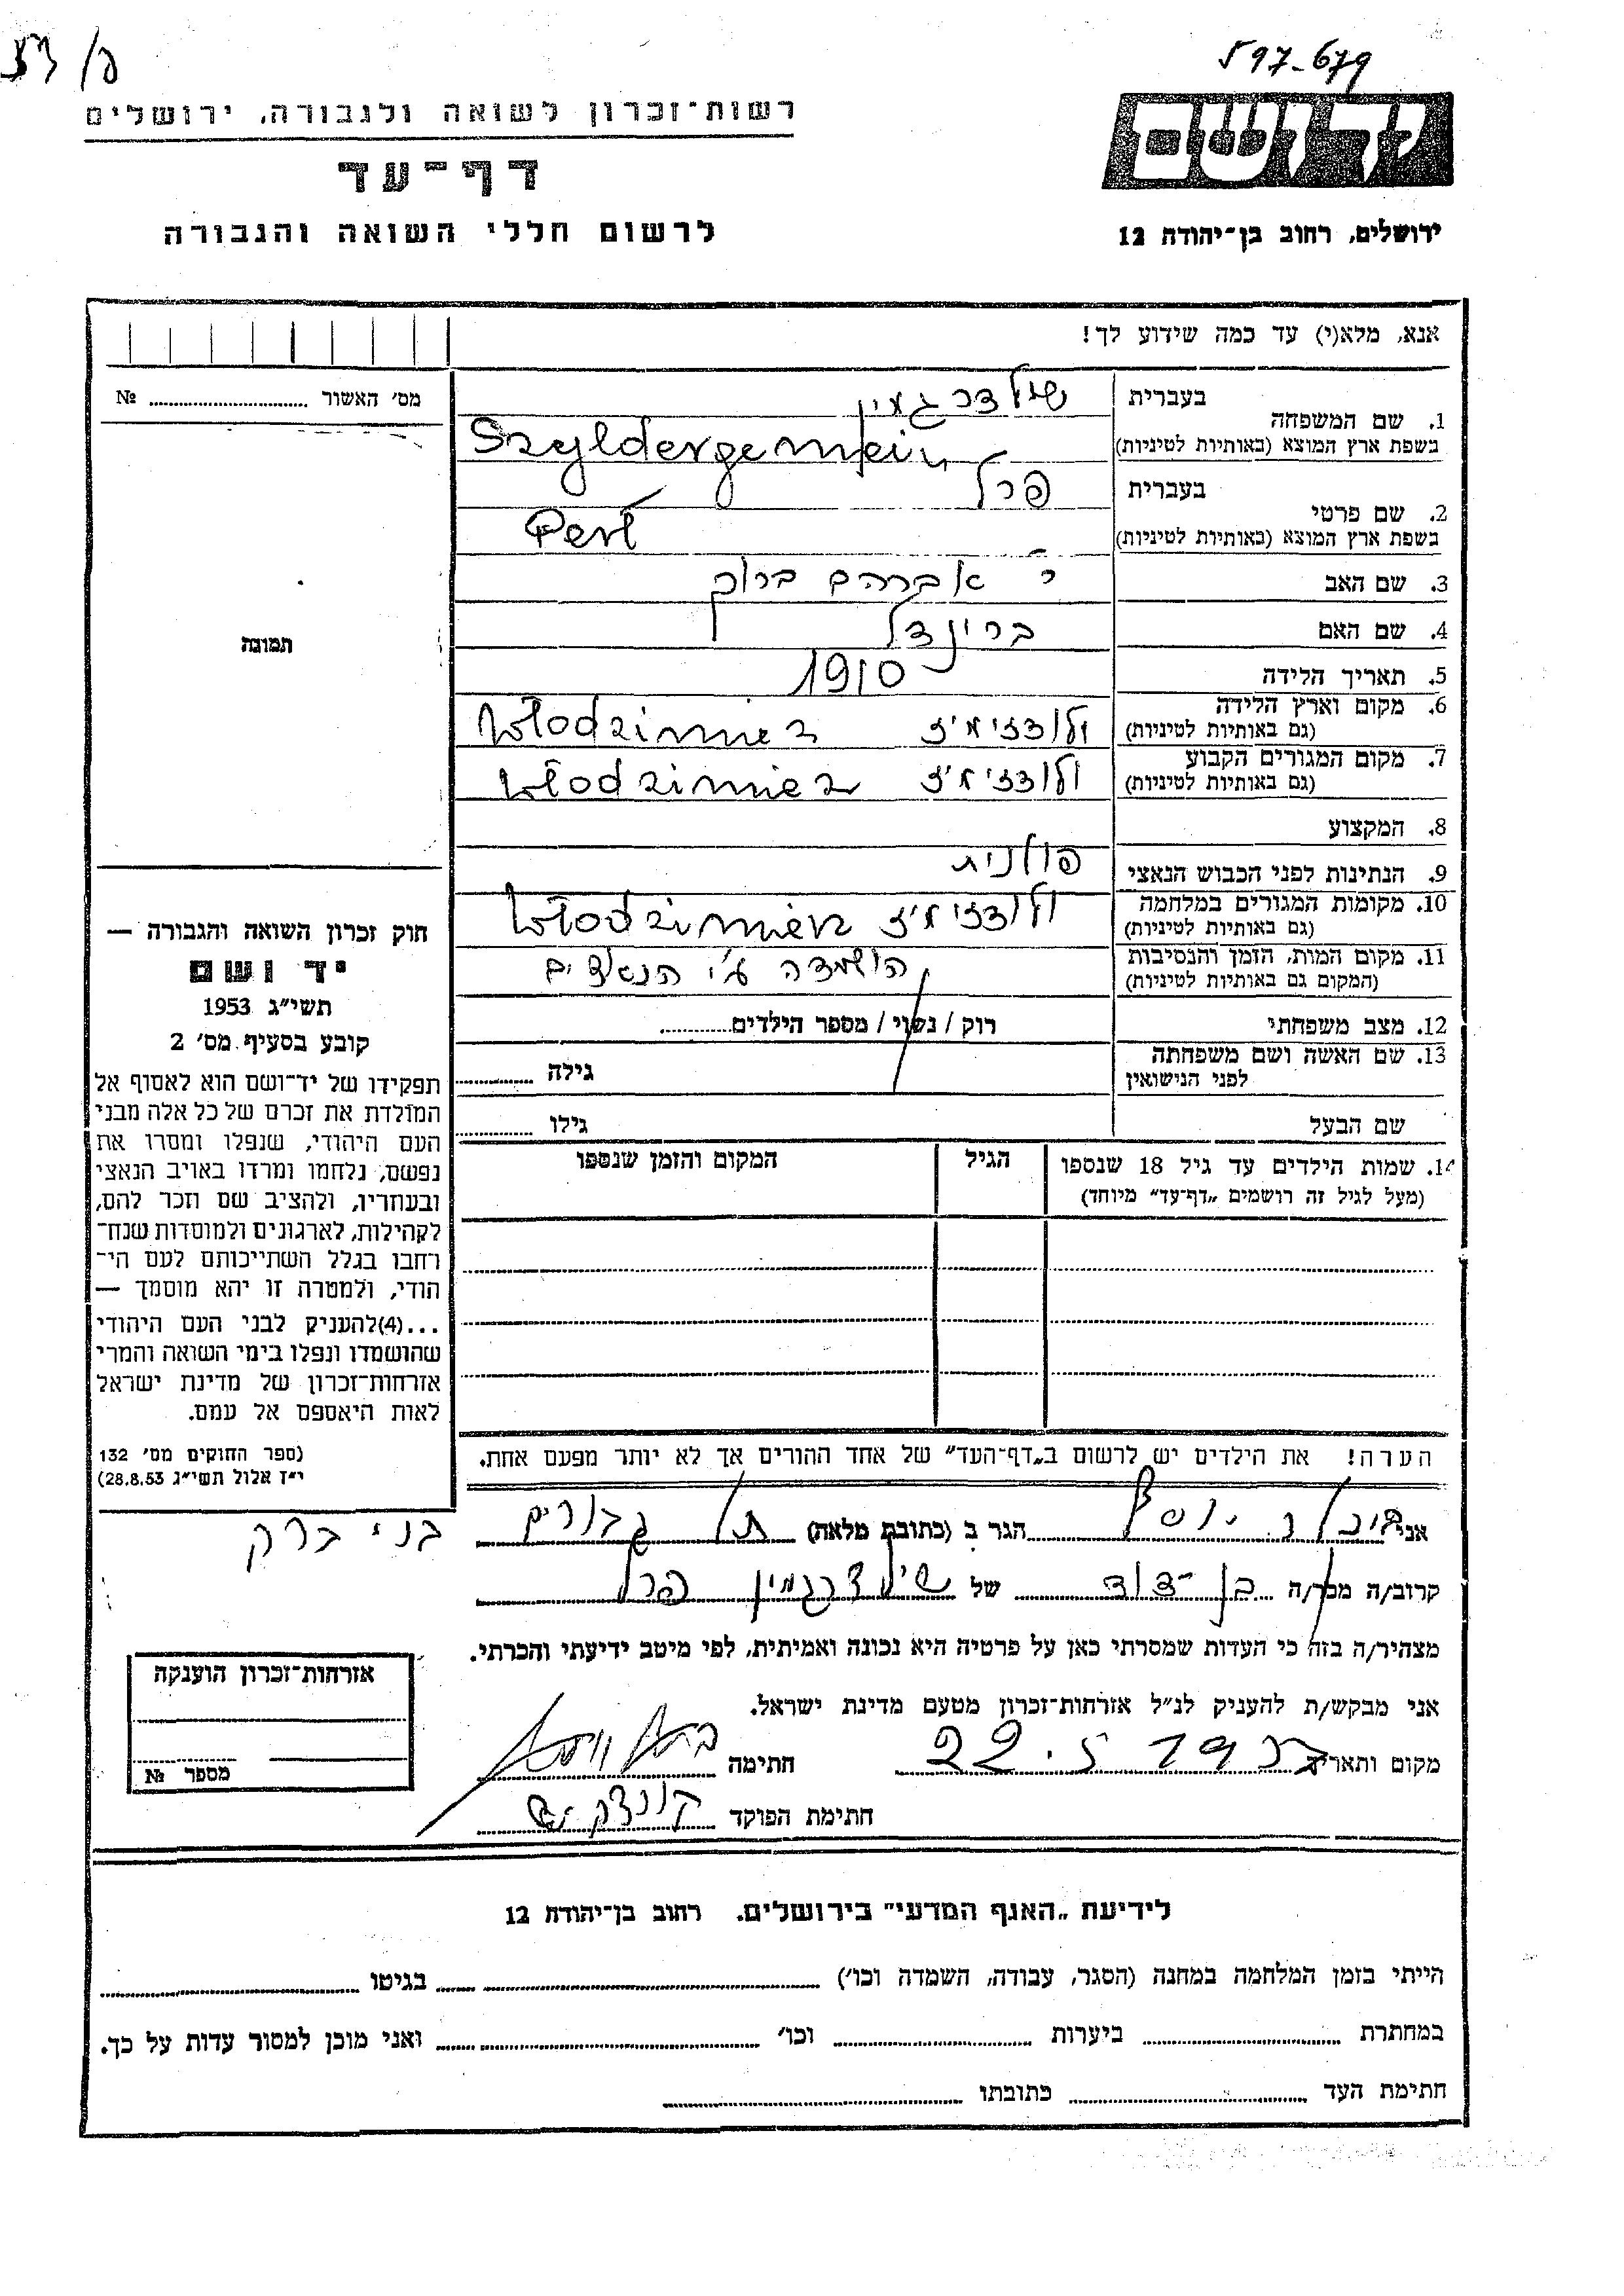 597-679
רשות-זכרון לשואה ולגבורה, ירושלים
דף-עד
לרשום חללי השואה והגבורה
ירושלים, רחוב בן-יהודה 12
אנא, מלא(י) עד כמה שידוע לך!
מס׳ האשור № 
1. שם המשפחה
בעברית
שילדרגמין
בשפת ארץ המוצא (באותיות לטיניות)
Szyldergemein
2. שם פרטי
בעברית
פרל
בשפת ארץ המוצא (באותיות לטיניות)
Perl
3. שם האב ר׳ אברהם ברוך
4. שם האם בריינדל
5. תאריך הלידה 1910
6. מקום וארץ הלידה
(גם באותיות לטיניות)
ולודזימיז Włodzimież
7. מקום המגורים הקבוע
(גם באותיות לטיניות)
ולודזימיז Włodzimież
8. המקצוע
9. הנתינות לפני הכבוש הנאצי פולנית
10. מקומות המגורים במלחמה
(גם באותיות לטיניות)
ולודזימיז Włodzimież
11. מקום המות, הזמן והנסיבות
(המקום גם באותיות לטיניות)
הושמדה ע״י הנאצים
12. מצב משפחתי רוק / נשוי / מספר הילדים
13. שם האשה ושם משפחתה
לפני הנישואין
גילה
שם הבעל גילו
14. שמות הילדים עד גיל 18 שנספו
(מעל לגיל זה רושמים „דף-עד״ מיוחד)
הגיל
המקום והזמן שנספו
תמונה
חוק זכרון השואה והגבורה —
יד ושם
תשי״ג 1953
קובע בסעיף מס׳ 2
תפקידו של יד-ושם הוא לאסוף אל
המולדת את זכרם של כל אלה מבני
העם היהודי, שנפלו ומסרו את
נפשם, נלחמו ומרדו באויב הנאצי
ובעוזריו, ולהציב שם וזכר להם,
לקהילות, לארגונים ולמוסדות שנח-
רבו בגלל השתייכותם לעם הי-
הודי, ולמטרה זו יהא מוסמך —
...(4)להעניק לבני העם היהודי
שהושמדו ונפלו בימי השואה והמרי
אזרחות-זכרון של מדינת ישראל
לאות היאספם אל עמם.
(ספר החוקים מס׳ 132
י״ז אלול תשי״ג 28.8.53)
הערה! את הילדים יש לרשום ב„דף-העד״ של אחד ההורים אך לא יותר מפעם אחת.
אני יוסף הגר ב (כתובת מלאה) תל גבורים בני ברק
קרוב/ה מכר/ה בן-דוד של שילדרגמין פרל
מצהיר/ה בזה כי העדות שמסרתי כאן על פרטיה היא נכונה ואמיתית, לפי מיטב ידיעתי והכרתי.
אני מבקש/ת להעניק לנ״ל אזרחות-זכרון מטעם מדינת ישראל.
מקום ותאריך 22.5 חתימה
חתימת הפוקד
אזרחות-זכרון הוענקה
מספר №
לידיעת „האגף המדעי״ בירושלים. רחוב בן-יהודה 12
הייתי בזמן המלחמה במחנה (הסגר, עבודה, השמדה וכו׳) בגיטו
במחתרת ביערות וכו׳ ואני מוכן למסור עדות על כך.
חתימת העד כתובתו